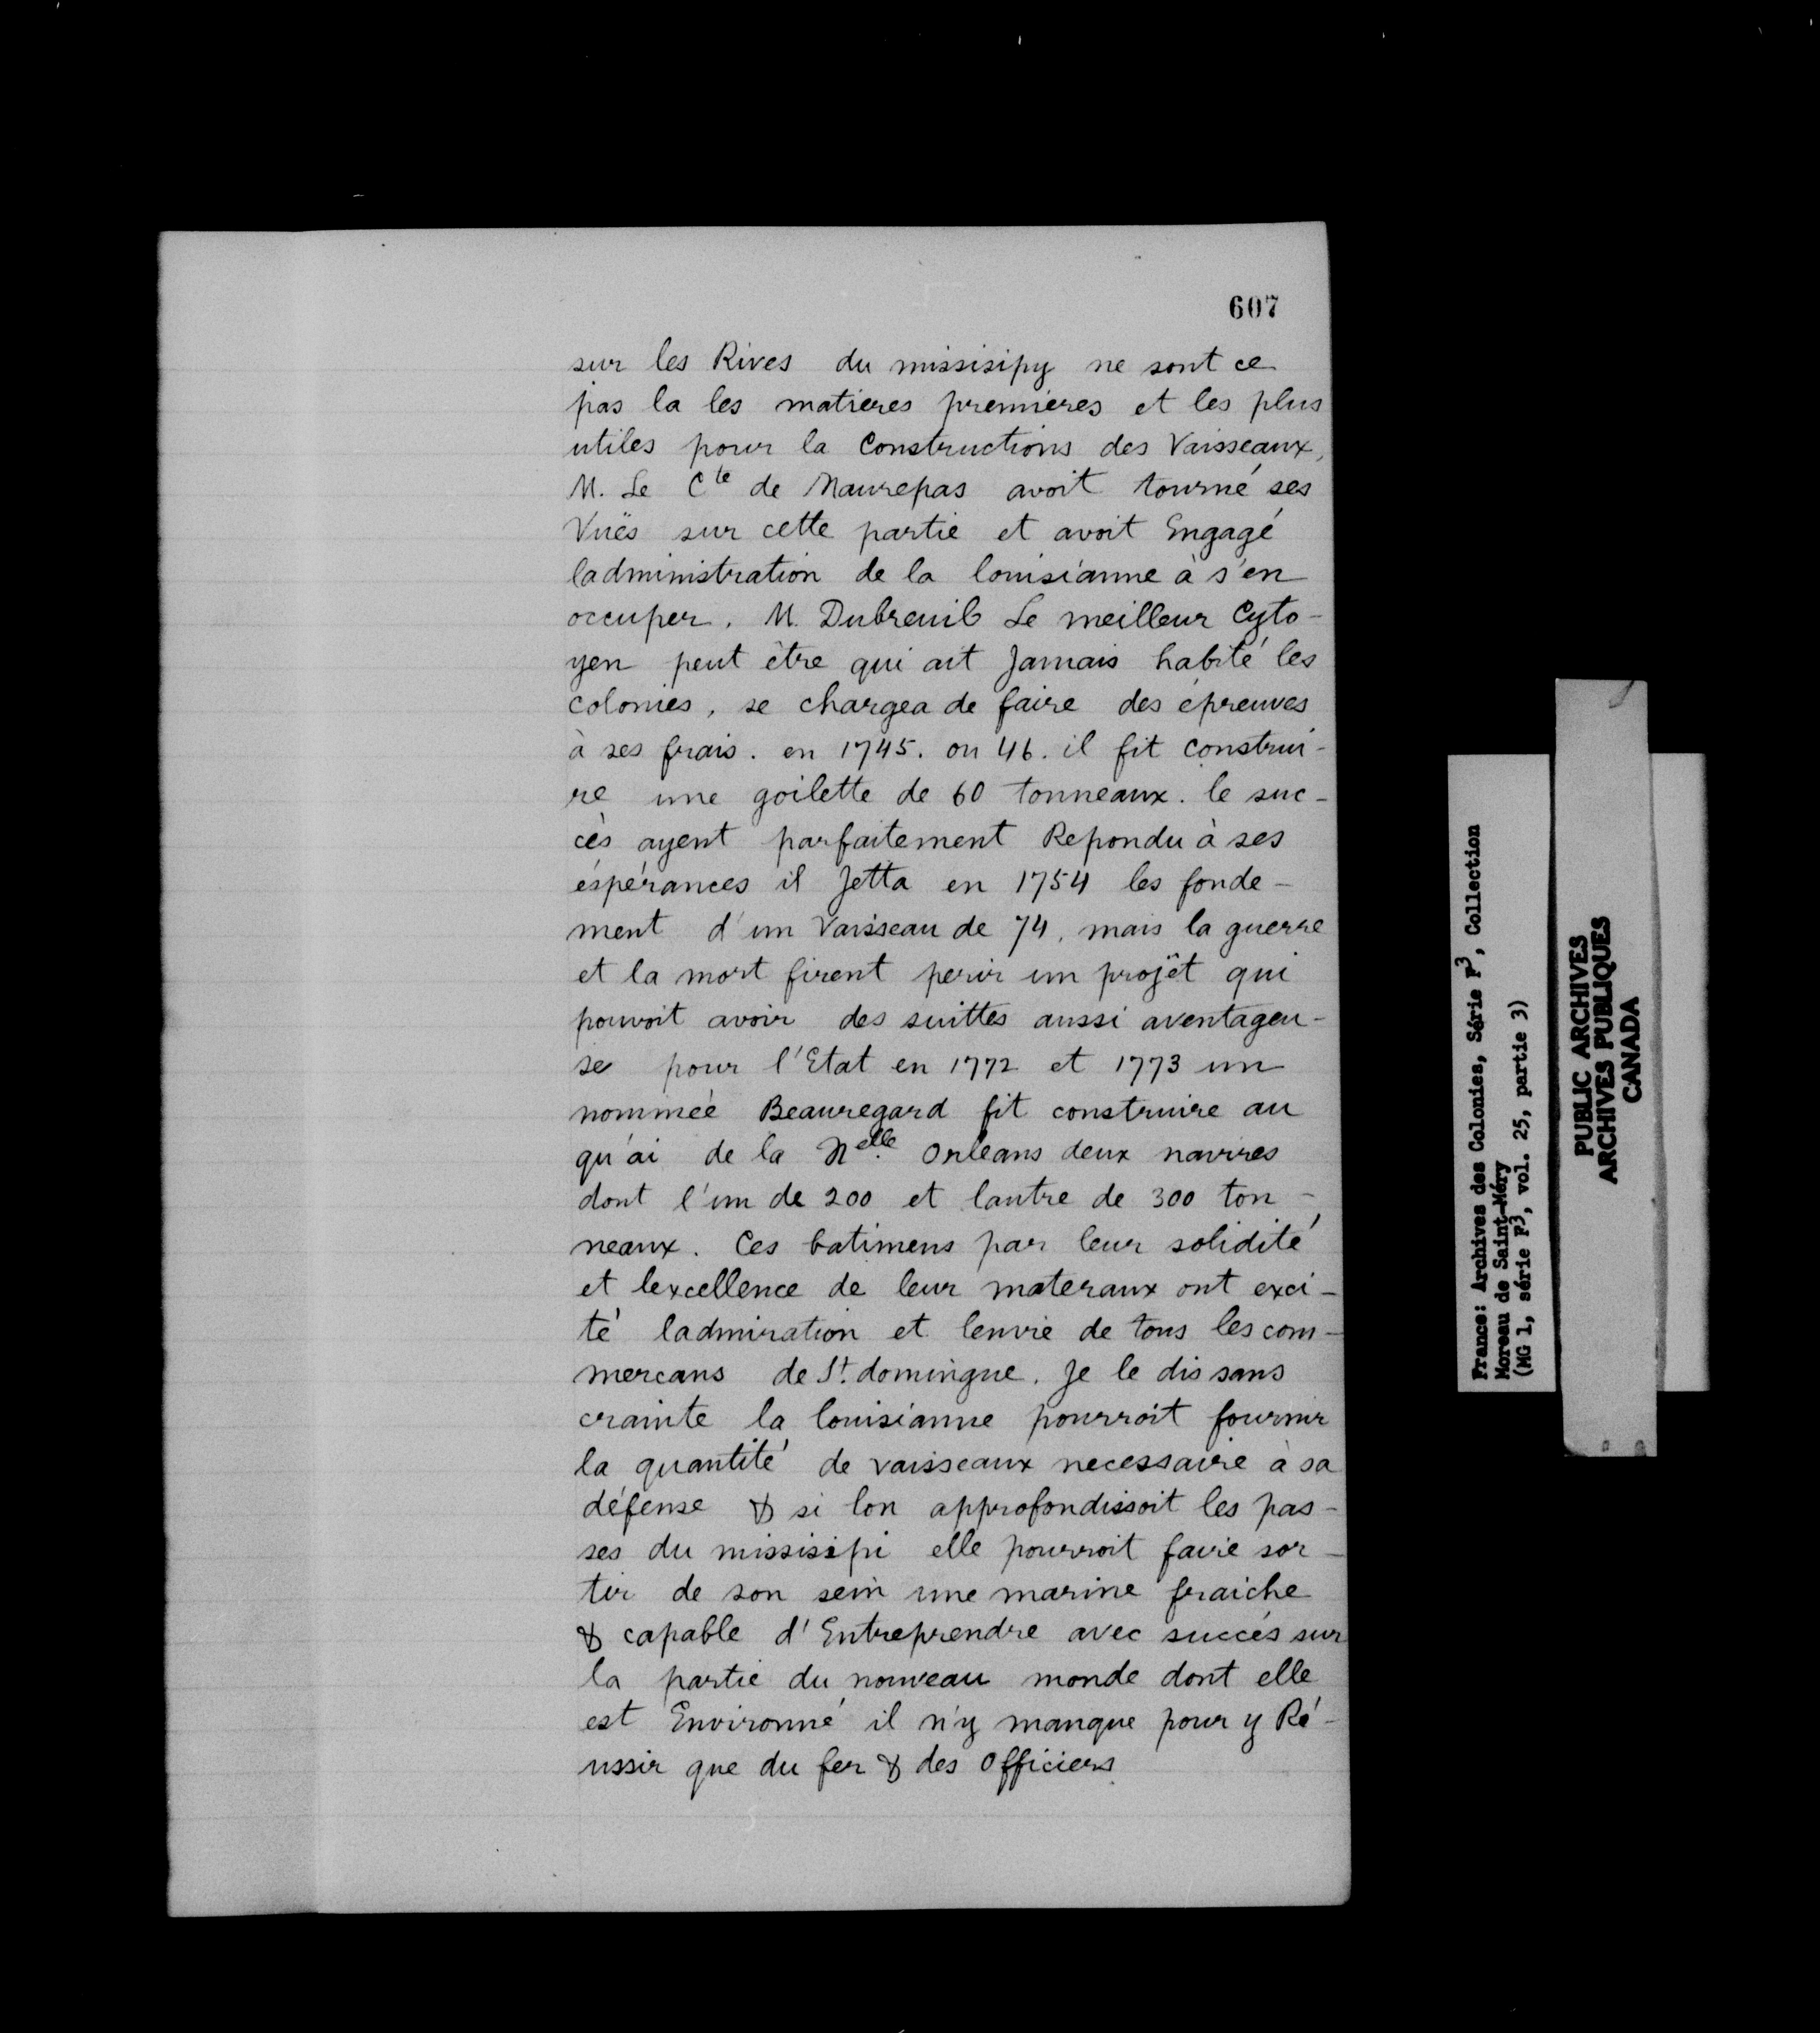 607
sur les Rives du missisipy ne sont ce
pas la les matieres premieres et les plus
utiles pour la Constructions des Vaisseaux,
M. Le Cte de Maurepas avoit tourné ses
Vuës sur cette partie et avoit Engagé
ladministration de la louisianne à s'en
occuper. M. Dubreuil Le meilleur Cyto-
yen peut être qui ait Jamais habité les
colonies, se chargea de faire des épreuves
à ses frais. en 1745. ou 46. il fit construi-
re une goilette de 60 tonneaux. le suc-
cès ayent parfaitement Repondu à ses
éspérances il Jetta en 1754 les fonde-
ment d'un Vaisseau de 74, mais la guerre
et la mort firent perir un projêt qui
pouvoit avoir des suittes aussi aventageu-
se pour l'Etat en 1772 et 1773 un
nommée Beauregard fit construire au
qu'ai de la Nelle Orleans deux navires
dont l'un de 200 et lautre de 300 ton-
neaux. Ces batimens par leur solidité
et lexcellence de leur materaux ont exci-
té ladmiration et lenvie de tous les com-
mercans de St. domingue. Je le dis sans
crainte la louisianne pourroit fournir
la quantité de vaisseaux necessaire à sa
défense & si lon approfondissoit les pas-
ses du missisipi elle pourroit faire sor-
tir de son sein une marine fraiche
& capable d'Entreprendre avec succés sur
la partie du nouveau monde dont elle
est Environné il n'y manque pour y Ré-
ussir que du fer & des Officiers
France: Archives des Colonies, Série F3, Collection
Moreau de Saint-Méry
(MG 1, série F3, vol. 25, partie 3)
PUBLIC ARCHIVES
ARCHIVES PUBLIQUES
CANADA